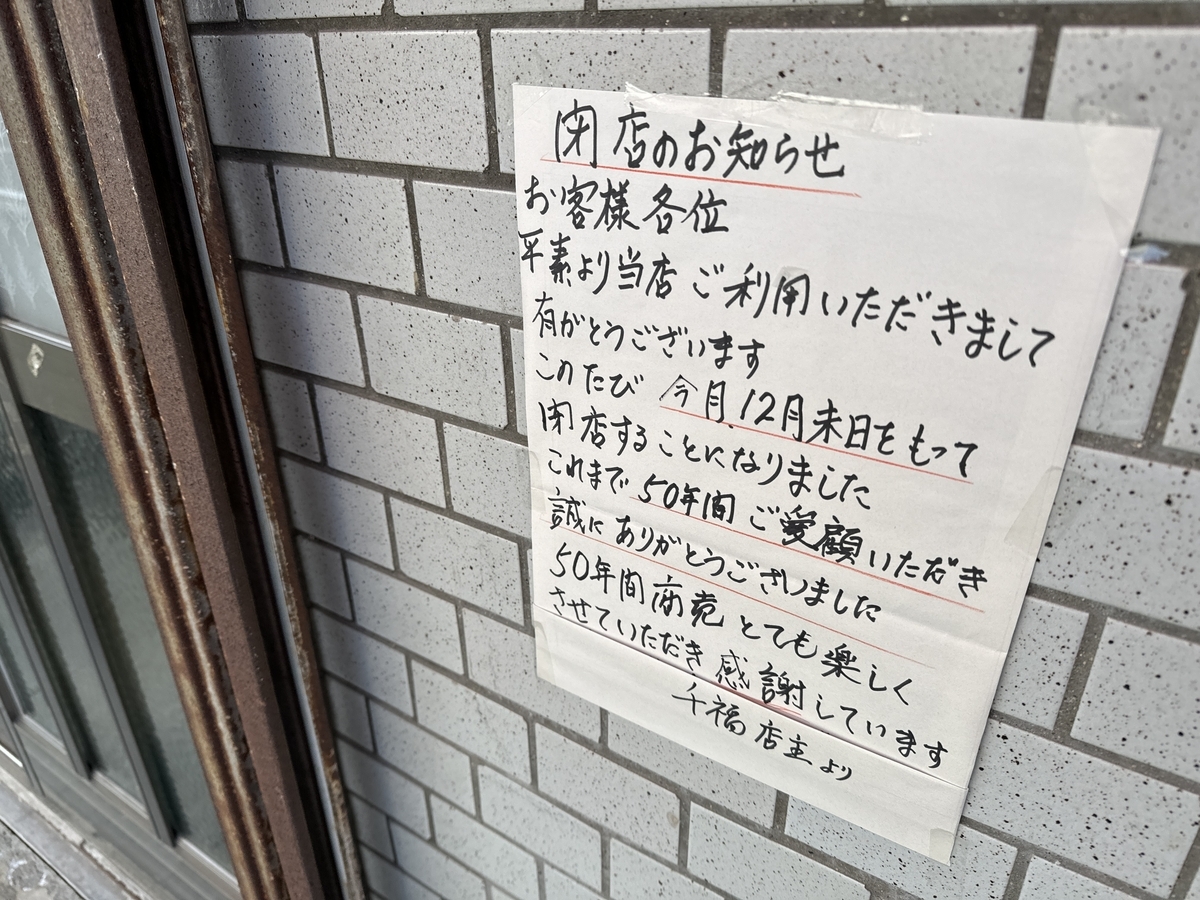 閉店のお知らせ
お客様各位
平素より当店ご利用いただきまして
有がとうございます
このたび 今月、12月末日をもって
閉店することになりました
これまで 50年間 ご愛顧いただき
誠に ありがとうございました
50年間商売 とても楽しく
させていただき感謝しています
千福店主より